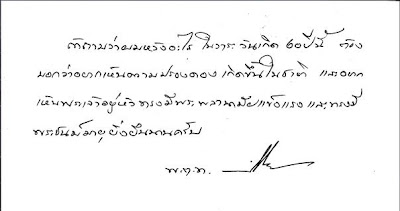 ถ้าถามว่าผมหวังอะไร ในวาระวันเกิด ๖๐ปีนี้ ต้อง
บอกว่าอยากเห็นความปรองดอง เกิดขึ้นในชาติ และอยาก
เห็นพระเจ้าอยู่หัวทรงมีพระพลานามัยแข็งแรง และทรงมี
พระชนม์มายุยิ่งยืนนานครับ
พ.ต.ท.